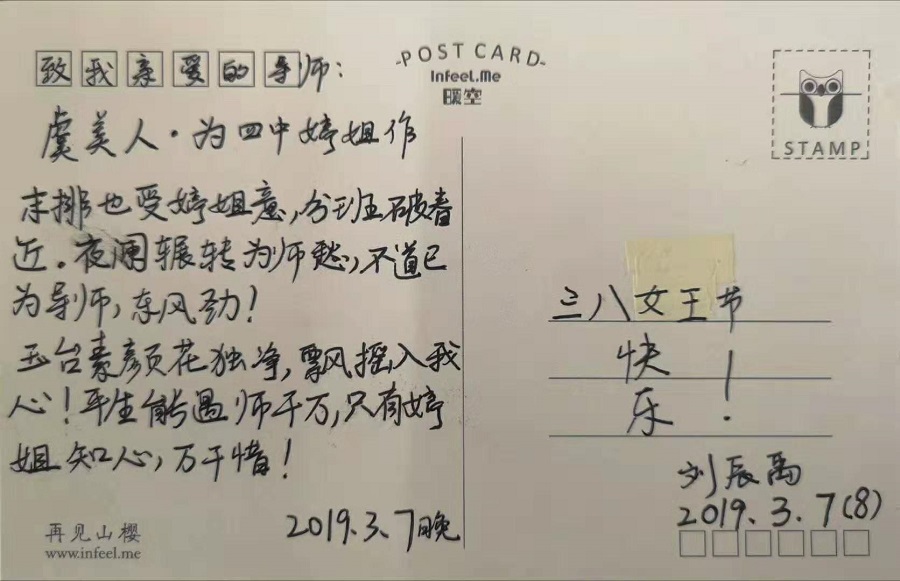 致我亲爱的导师：
虞美人·为四中婷姐作
末排也受婷姐意，分班五破春
近。夜阑辗转为师愁，不道已
为导师，东风劲！
玉台素颜花独净，飘风摇入我
心！平生能遇师千万，只有婷
姐知心，万千惜！
2019.3.7晚
再见山樱
www.infeel.me
-POST CARD-
Infeel.Me
暖空
STAMP
三八女王节
快
乐！
刘辰禹
2019.3.7(8)